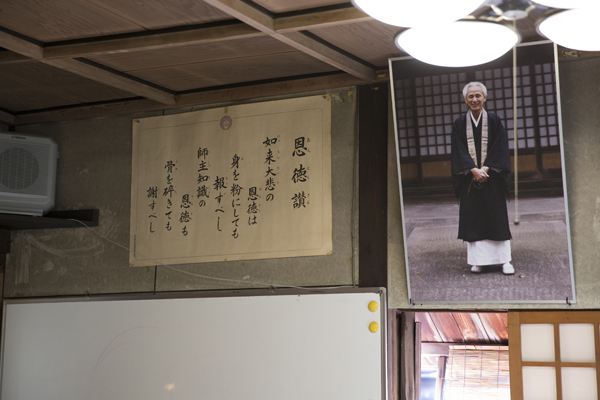 恩徳讃
如来大悲の
恩徳は
身を粉にしても
報ずべし
師主知識の
恩徳も
骨を砕きても
謝すべし